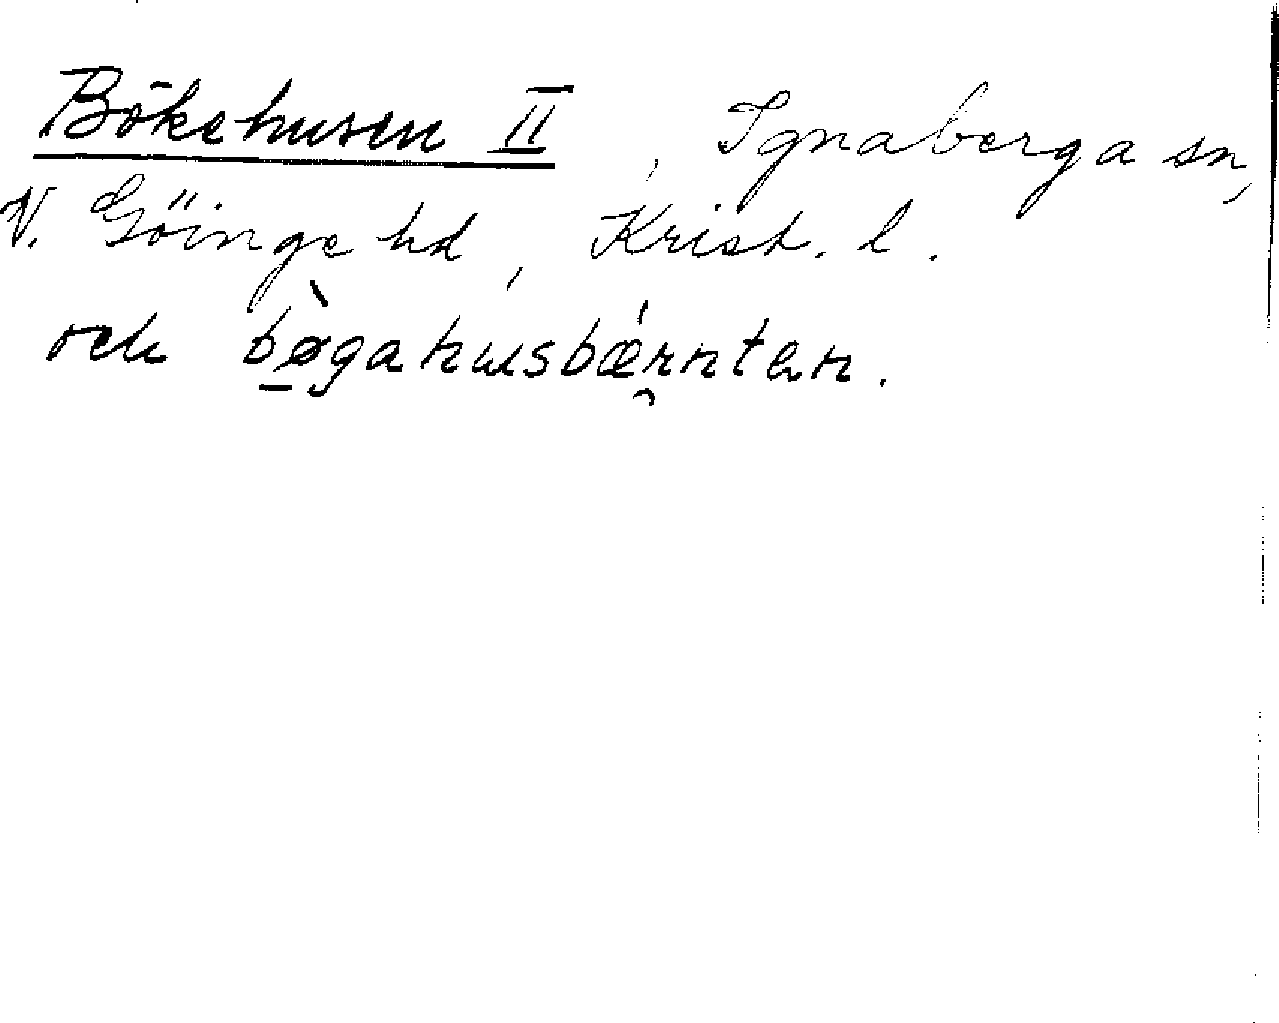 Bökehusen II, Ignaberga sn,
V. Göinge hd, Krist. l.
och bø̱̀gahusbǽr̯ntan.